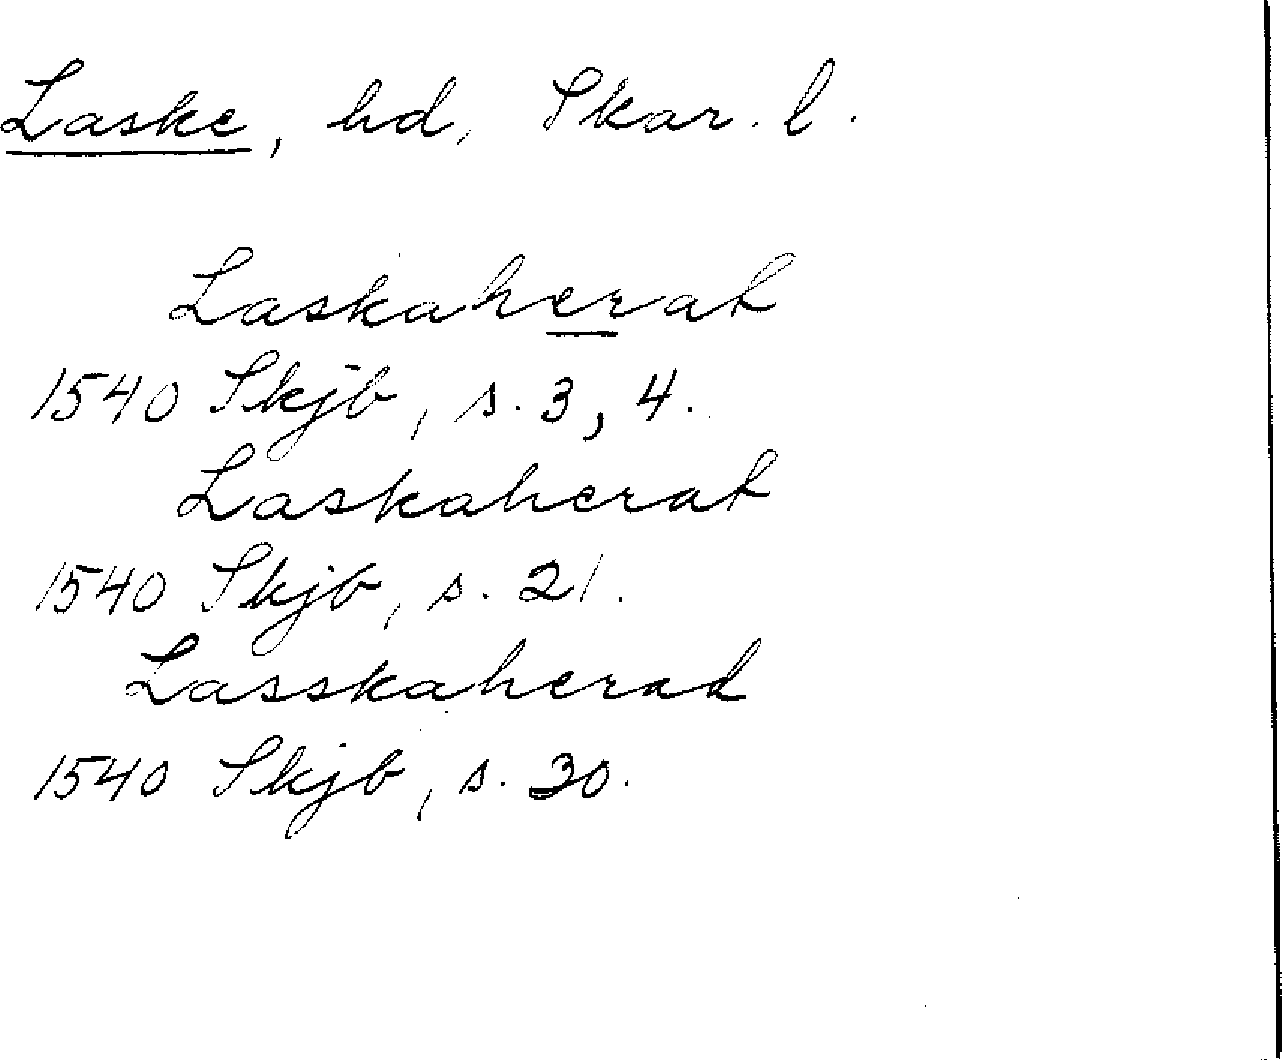 Laske, hd, Skar. l.
Laskaherat
1540 Skjb, s. 3, 4.
Laskaherat
1540 Skjb, s. 21.
Lasskaherad
1540 Skjb, s. 30.